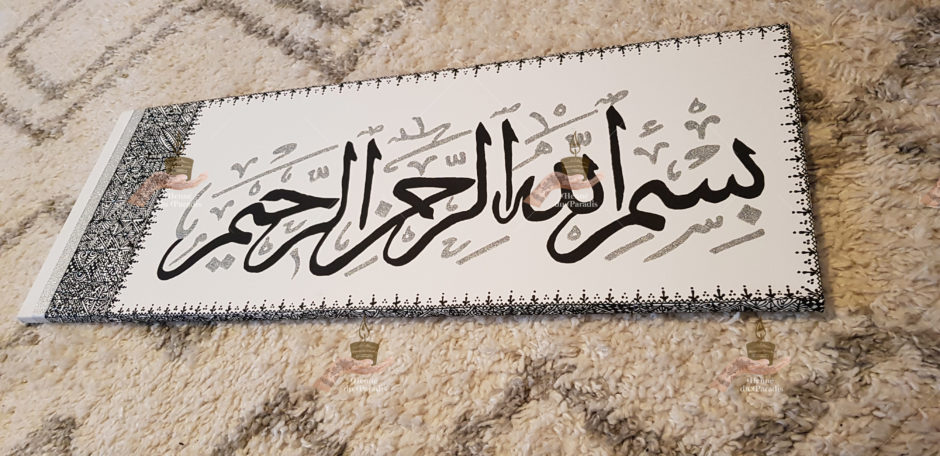 بسم الله الرحمن الرحيم
Henné
du Paradis
Henné
du Paradis
Henné
du Paradis
Henné
du Paradis